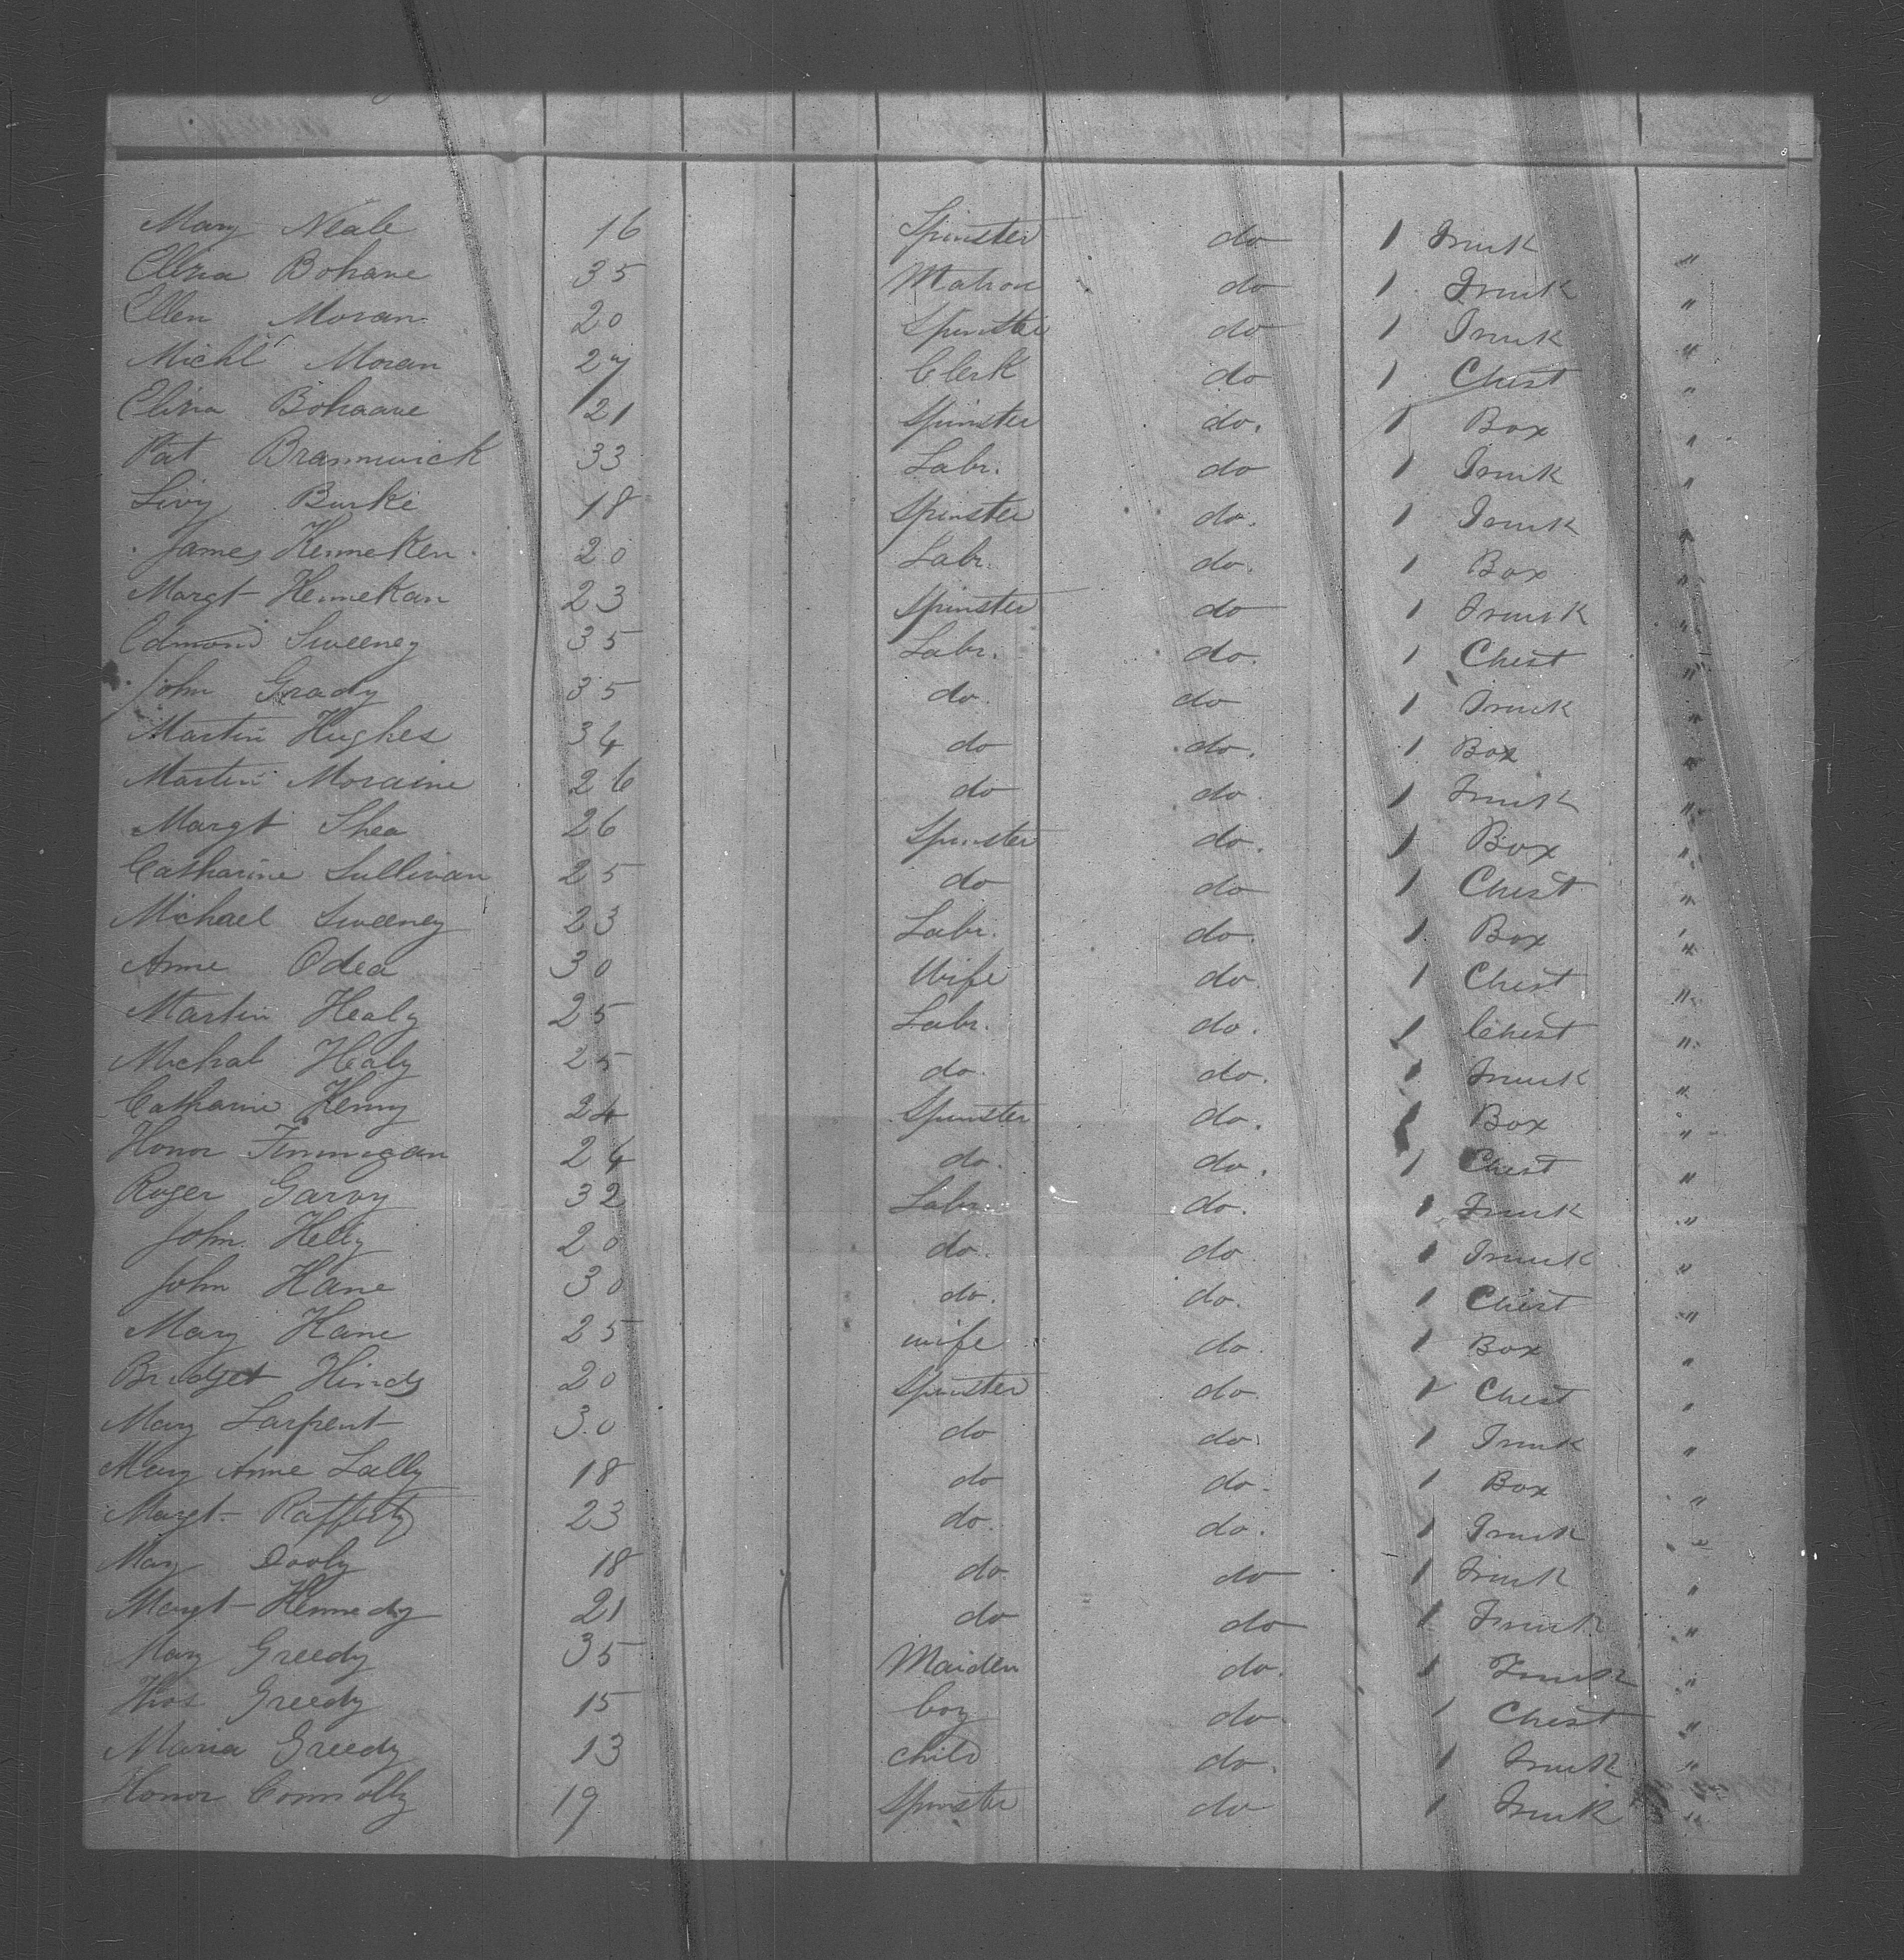 Mary Neale 16 Spinster do 1 Trunk "
Eliza Bohane 35 Matron do 1 Trunk "
Ellen Moran 20 Spinster do 1 Trunk "
Michl Moran 27 Clerk do 1 Chest "
Eliza Bohaane 21 Spinster do. 1 Box "
Pat Brannwick 33 Labr. do 1 Trunk "
Livy Burke 18 Spinster do. 1 Trunk "
James Henneken 20 Labr. do. 1 Box "
Margt Hennekan 23 Spinster do 1 Trunk "
Edmond Sweeney 35 Labr. do. 1 Chest "
John Grady 35 do. do 1 Trunk "
Martin Hughes 34 do do. 1 Box "
Martin Moraine 26 do do. 1 Trunk "
Margt Shea 26 Spinster do. 1 Box "
Catharine Sullivan 25 do do 1 Chest "
Michael Sweeney 23 Labr. do. 1 Box "
Anne Odea 30 Wife do. 1 Chest "
Martin Healy 25 Labr. do. 1 Chest "
Michal Healy 25 do. do. 1 Trunk "
Catharine Kenny 24 Spinster do. 1 Box "
Honor Finnigan 24 do. do. 1 Chest "
Roger Garvy 32 Labr. do. 1 Trunk "
John Kelly 20 do. do. 1 Trunk "
John Kane 30 do. do. 1 Chest "
Mary Kane 25 wife do. 1 Box "
Bridget Hinds 20 Spinster do. 1 Chest "
Mary Larpent 30 do do. 1 Trunk "
Mary Anne Lally 18 do do. 1 Box "
Margt Rafferty 23 do. do. 1 Trunk "
Mary Dooly 18 do. do 1 Trunk "
Margt Kennedy 21 do do 1 Trunk "
Mary Greedy 35 Maiden do. 1 Trunk "
Thos Greedy 15 boy do. 1 Chest "
Maria Greedy 13 child do. 1 Trunk "
Honor Connolly 19 Spinster do 1 Trunk "